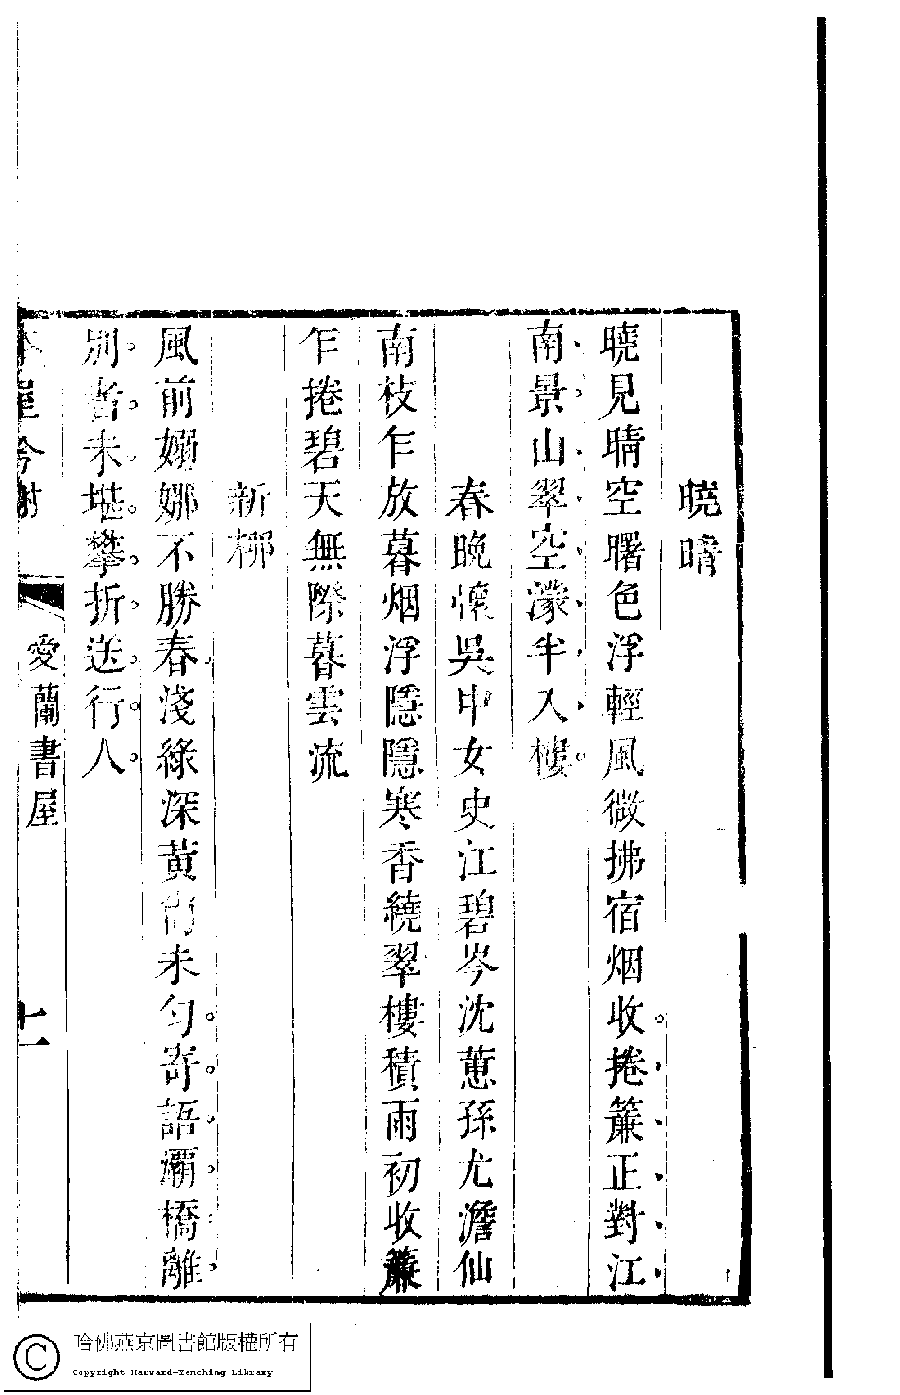 曉晴
曉見晴空曙色浮輕風微拂宿烟收捲簾正對江
南景山翠空濛半入樓
春晚懷吳中女史江碧岑沈蕙孫尤澹仙
南枝乍放暮烟浮隱隱寒香繞翠樓積雨初收簾
乍捲碧天無際暮雲流
新柳
風前嫋娜不勝春淺綠深黃尙未勻寄語灞橋離
別者未堪攀折送行人
愛蘭書屋
哈佛燕京圖書館版權所有
Copyright Harvard-Yenching Library